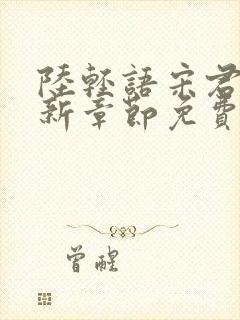 陸輕語宋君
新章節免費
曾醒